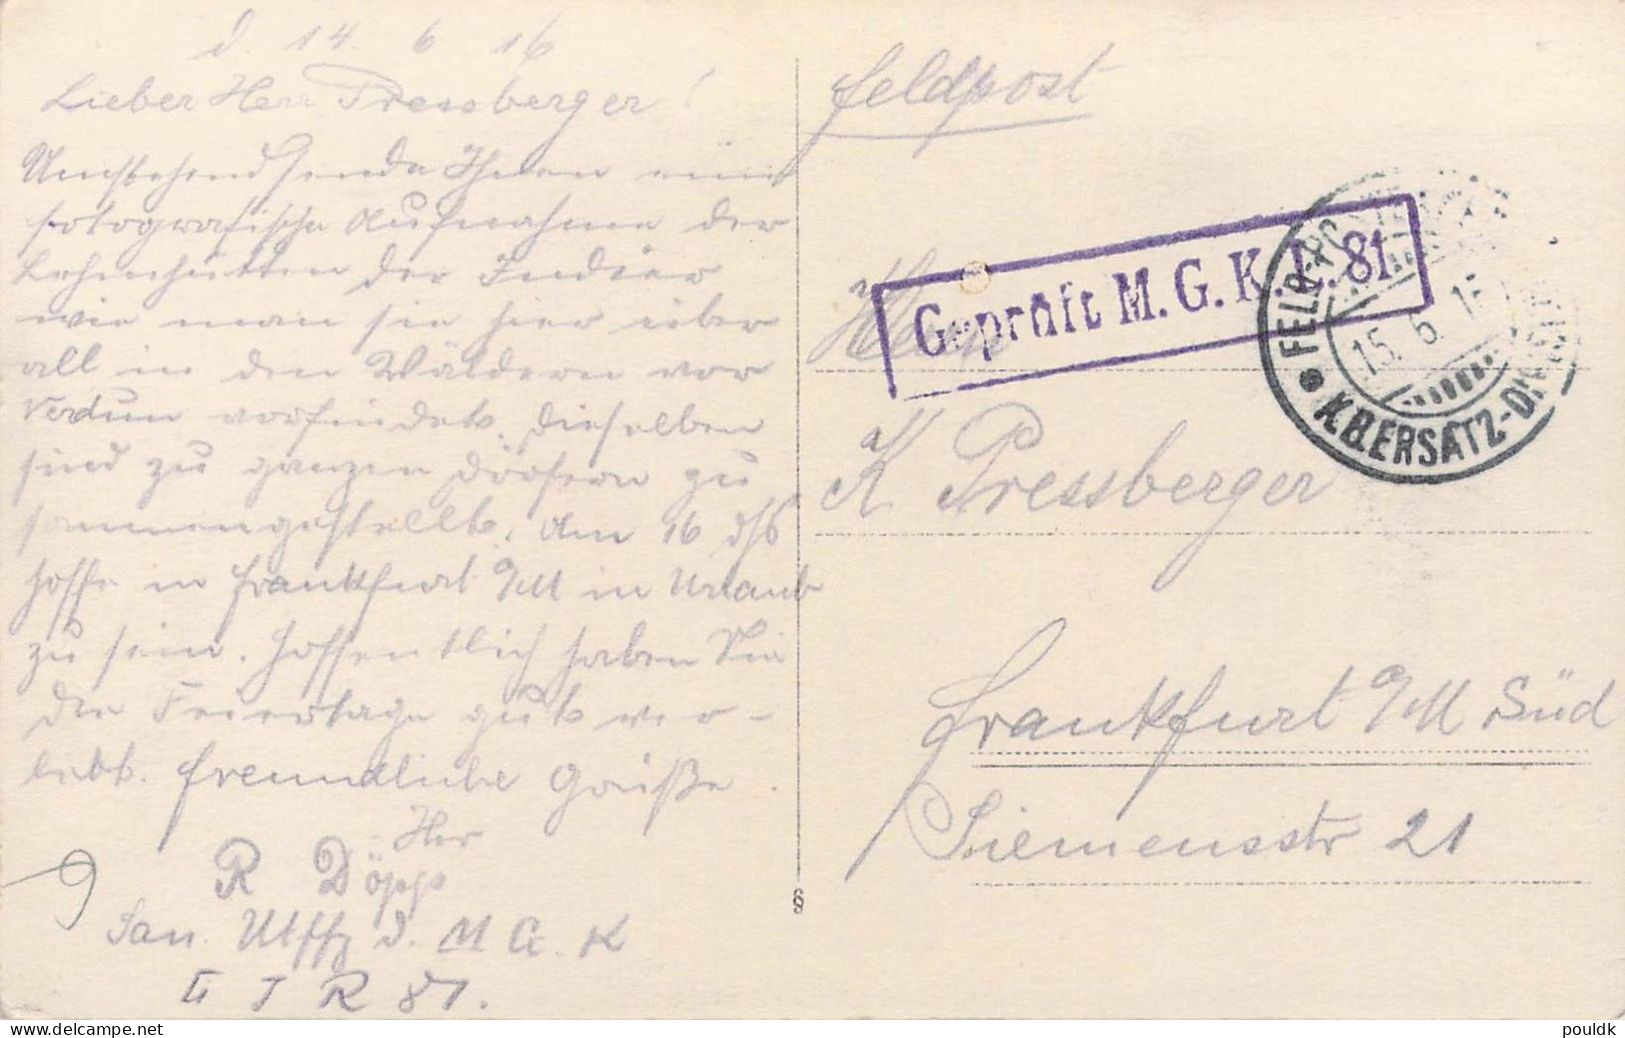 d. 14 6 16
Lieber Herr Pressberger!
Umstehend sende Ihnen eine
fotografische Aufnahme der
Lehmhütten der Indier
wie man sie hier über
all in den Wäldern vor
Verdun vorfindet. Dieselben
sind zu ganzen Dörfern zu
sammengestellt. Am 16 dss
hoffe in Frankfurt a/M in Urlaub
zu sein. Hoffentlich haben Sie
die Feiertage gut ver-
lebt. Freundliche Grüße.
Ihr
R Döpp
San. Utffz d. M G. K
II I R 81.
Feldpost
Geprüft M. G. K. I. 81
FELDPOST
15. 6. 1
K.B.ERSATZ-DIVISION
Herrn
K Pressberger
Frankfurt a/M Süd
Siemensstr 21
§
www.delcampe.net
pouldk